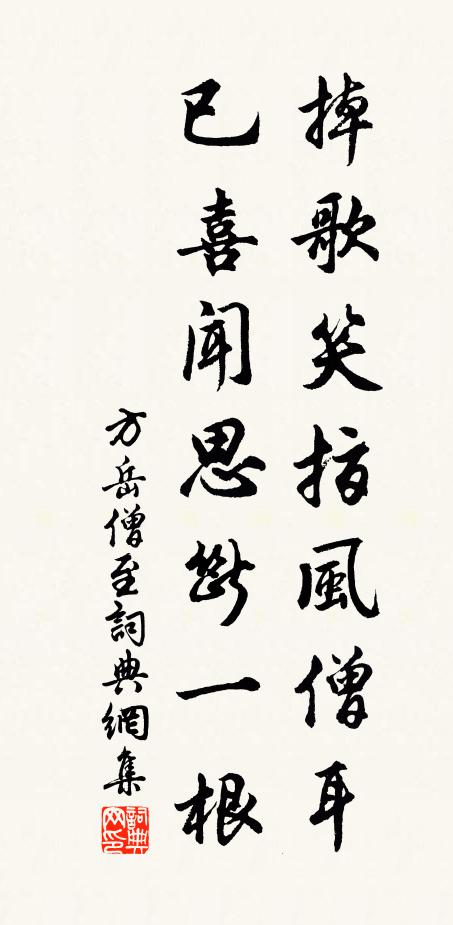 掉歌笑指風僧耳
已喜聞思斷一根
方岳僧至詞典網集
詞典网印